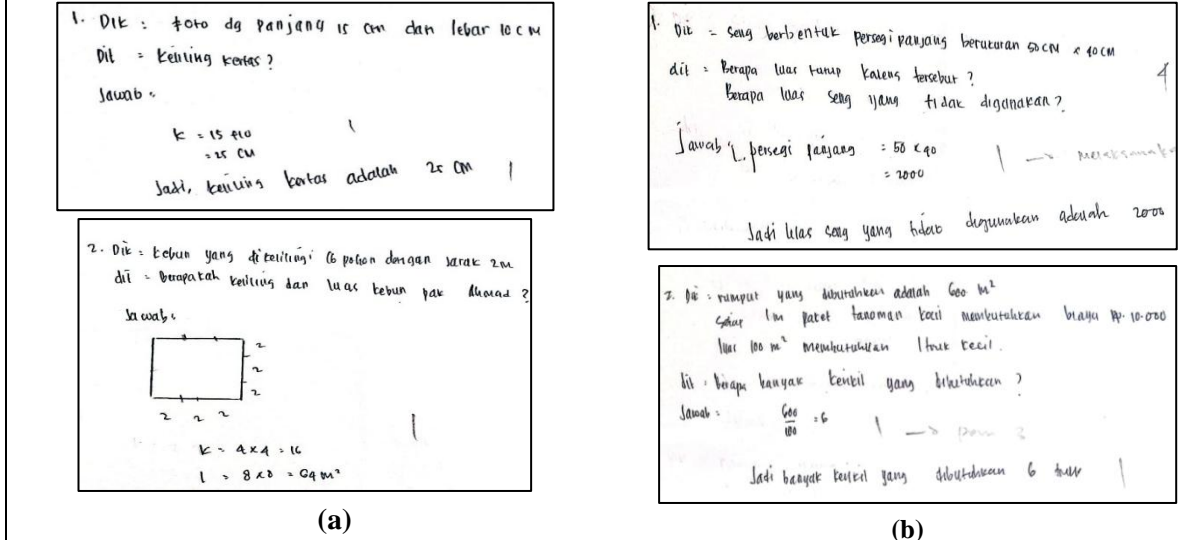 1. Dik : foto dg panjang 15 cm dan lebar 10 cm
Dit = keliling kertas?
Jawab :
k = 15 + 10
= 25 cm
Jadi, keliling kertas adalah 25 cm
1
1
2. Dik : kebun yang dikelilingi 16 pohon dengan jarak 2m
dit = berapakah keliling dan luas kebun pak Ahmad?
Jawab :
2
2
2
2 2 2
1
k = 4 x 4 = 16
l = 8 x 8 = 64 m²
(a)
1. Dik = seng berbentuk persegi panjang berukuran 50 cm x 40 cm
dit = Berapa luas tutup kaleng tersebut?
4
Berapa luas seng yang tidak digunakan?
Jawab : L persegi panjang = 50 x 40
= 2000
1 →
Jadi luas seng yang tidak digunakan adalah 2000
2. Dik : rumput yang dibutuhkan adalah 600 m²
Setiap 1m paket tanaman kecil membutuhkan biaya Rp. 10.000
luas 100 m² membutuhkan 1 truk kecil.
dit : berapa banyak kerikil yang dibutuhkan?
Jawab : 600/100 = 6
1 →
Jadi banyak kerikil yang dibutuhkan 6 truk
1
(b)